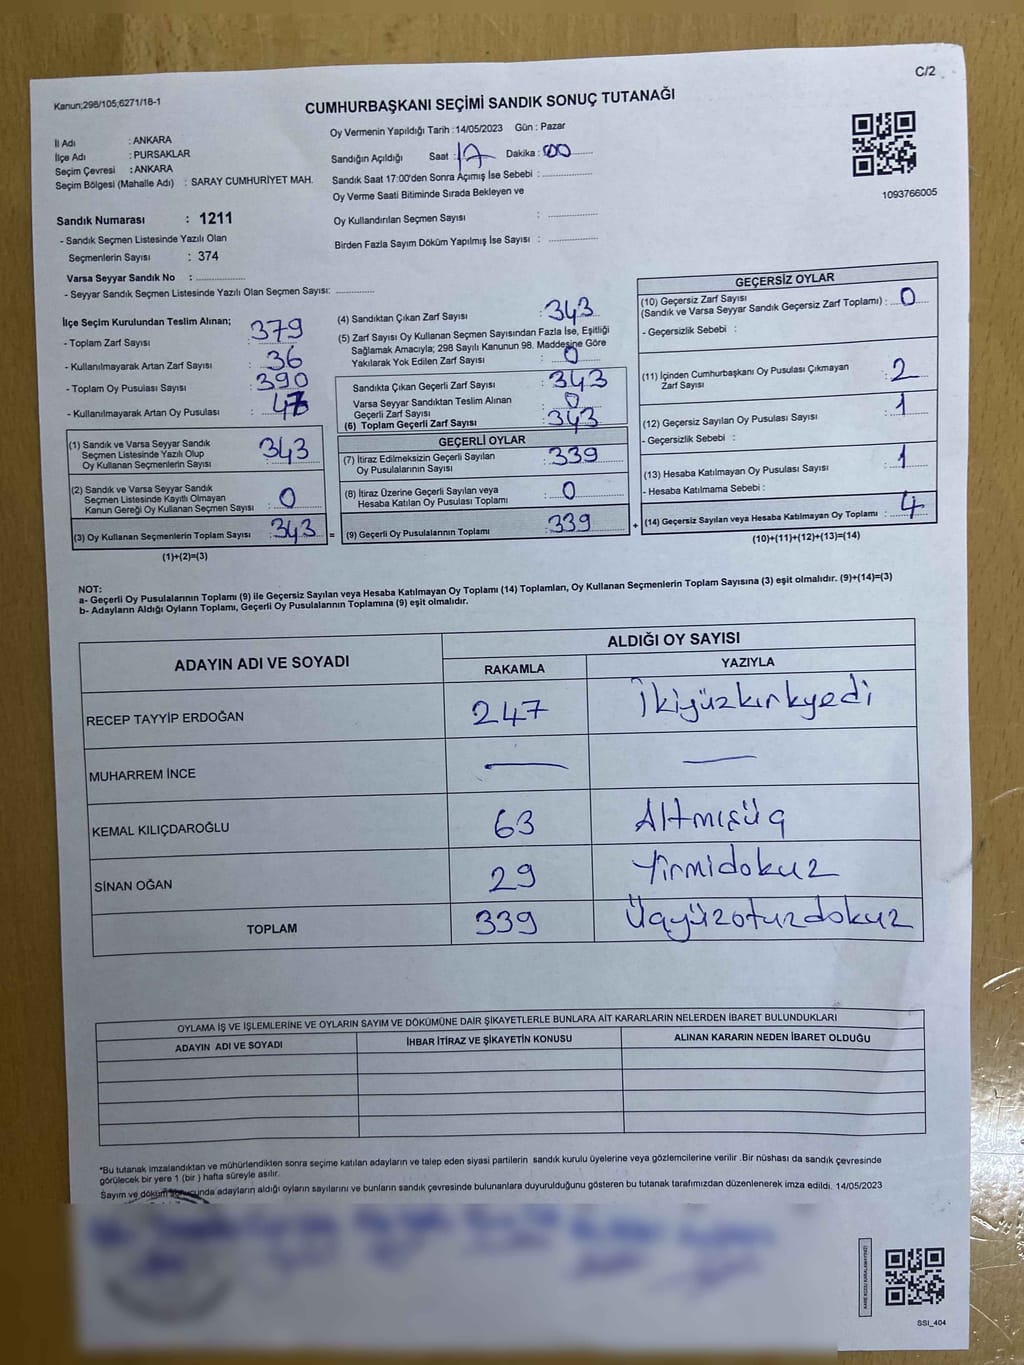 C/2
Kanun;298/105;6271/18-1
CUMHURBAŞKANI SEÇİMİ SANDIK SONUÇ TUTANAĞI
İl Adı : ANKARA
İlçe Adı : PURSAKLAR
Seçim Çevresi : ANKARA
Seçim Bölgesi (Mahalle Adı) : SARAY CUMHURİYET MAH.
Sandık Numarası : 1211
- Sandık Seçmen Listesinde Yazılı Olan
Seçmenlerin Sayısı : 374
Varsa Seyyar Sandık No : ..............
- Seyyar Sandık Seçmen Listesinde Yazılı Olan Seçmen Sayısı: ............
Oy Vermenin Yapıldığı Tarih : 14/05/2023 Gün : Pazar
Sandığın Açıldığı Saat : 17 Dakika : 00
Sandık Saat 17:00'den Sonra Açımış İse Sebebi : ..............
Oy Verme Saati Bitiminde Sırada Bekleyen ve
Oy Kullandırılan Seçmen Sayısı : ..............
Birden Fazla Sayım Döküm Yapılmış İse Sayısı : ..............
1093766005
İlçe Seçim Kurulundan Teslim Alınan;
- Toplam Zarf Sayısı : 379
- Kullanılmayarak Artan Zarf Sayısı : 36
- Toplam Oy Pusulası Sayısı : 390
- Kullanılmayarak Artan Oy Pusulası : 47
(1) Sandık ve Varsa Seyyar Sandık
Seçmen Listesinde Yazılı Olup
Oy Kullanan Seçmenlerin Sayısı : 343
(2) Sandık ve Varsa Seyyar Sandık
Seçmen Listesinde Kayıtlı Olmayan
Kanun Gereği Oy Kullanan Seçmen Sayısı : 0
(3) Oy Kullanan Seçmenlerin Toplam Sayısı : 343 =
(1)+(2)=(3)
(4) Sandıktan Çıkan Zarf Sayısı : 343
(5) Zarf Sayısı Oy Kullanan Seçmen Sayısından Fazla İse, Eşitliği
Sağlamak Amacıyla; 298 Sayılı Kanunun 98. Maddesine Göre
Yakılarak Yok Edilen Zarf Sayısı : 0
Sandıkta Çıkan Geçerli Zarf Sayısı : 343
Varsa Seyyar Sandıktan Teslim Alınan
Geçerli Zarf Sayısı : 0
(6) Toplam Geçerli Zarf Sayısı : 343
GEÇERLİ OYLAR
(7) İtiraz Edilmeksizin Geçerli Sayılan
Oy Pusulalarının Sayısı : 339
(8) İtiraz Üzerine Geçerli Sayılan veya
Hesaba Katılan Oy Pusulası Toplamı : 0
(9) Geçerli Oy Pusulalarının Toplamı : 339 +
GEÇERSİZ OYLAR
(10) Geçersiz Zarf Sayısı
(Sandık ve Varsa Seyyar Sandık Geçersiz Zarf Toplamı) : 0
- Geçersizlik Sebebi :
(11) İçinden Cumhurbaşkanı Oy Pusulası Çıkmayan
Zarf Sayısı : 2
(12) Geçersiz Sayılan Oy Pusulası Sayısı : 1
- Geçersizlik Sebebi :
(13) Hesaba Katılmayan Oy Pusulası Sayısı : 1
- Hesaba Katılmama Sebebi :
(14) Geçersiz Sayılan veya Hesaba Katılmayan Oy Toplamı : 4
(10)+(11)+(12)+(13)=(14)
NOT:
a- Geçerli Oy Pusulalarının Toplamı (9) ile Geçersiz Sayılan veya Hesaba Katılmayan Oy Toplamı (14) Toplamları, Oy Kullanan Seçmenlerin Toplam Sayısına (3) eşit olmalıdır. (9)+(14)=(3)
b- Adayların Aldığı Oyların Toplamı, Geçerli Oy Pusulalarının Toplamına (9) eşit olmalıdır.
ADAYIN ADI VE SOYADI
ALDIĞI OY SAYISI
RAKAMLA YAZIYLA
RECEP TAYYİP ERDOĞAN 247 İkiyüzkırkyedi
MUHARREM İNCE — —
KEMAL KILIÇDAROĞLU 63 Altmışüç
SİNAN OĞAN 29 Yirmidokuz
TOPLAM 339 Üçyüzotuzdokuz
OYLAMA İŞ VE İŞLEMLERİNE VE OYLARIN SAYIM VE DÖKÜMÜNE DAİR ŞİKAYETLERLE BUNLARA AİT KARARLARIN NELERDEN İBARET BULUNDUKLARI
ADAYIN ADI VE SOYADI İHBAR İTİRAZ VE ŞİKAYETİN KONUSU ALINAN KARARIN NEDEN İBARET OLDUĞU
*Bu tutanak imzalandıktan ve mühürlendikten sonra seçime katılan adayların ve talep eden siyasi partilerin sandık kurulu üyelerine veya gözlemcilerine verilir .Bir nüshası da sandık çevresinde
görülecek bir yere 1 (bir ) hafta süreyle asılır.
Sayım ve döküm sonucunda adayların aldığı oyların sayılarını ve bunların sandık çevresinde bulunanlara duyurulduğunu gösteren bu tutanak tarafımızdan düzenlenerek imza edildi. 14/05/2023
SSI_404